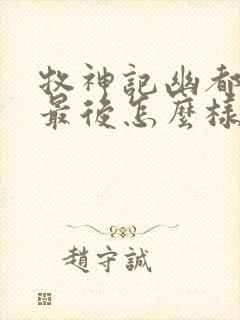 牧神記幽都
最後怎麼樣
趙守誠